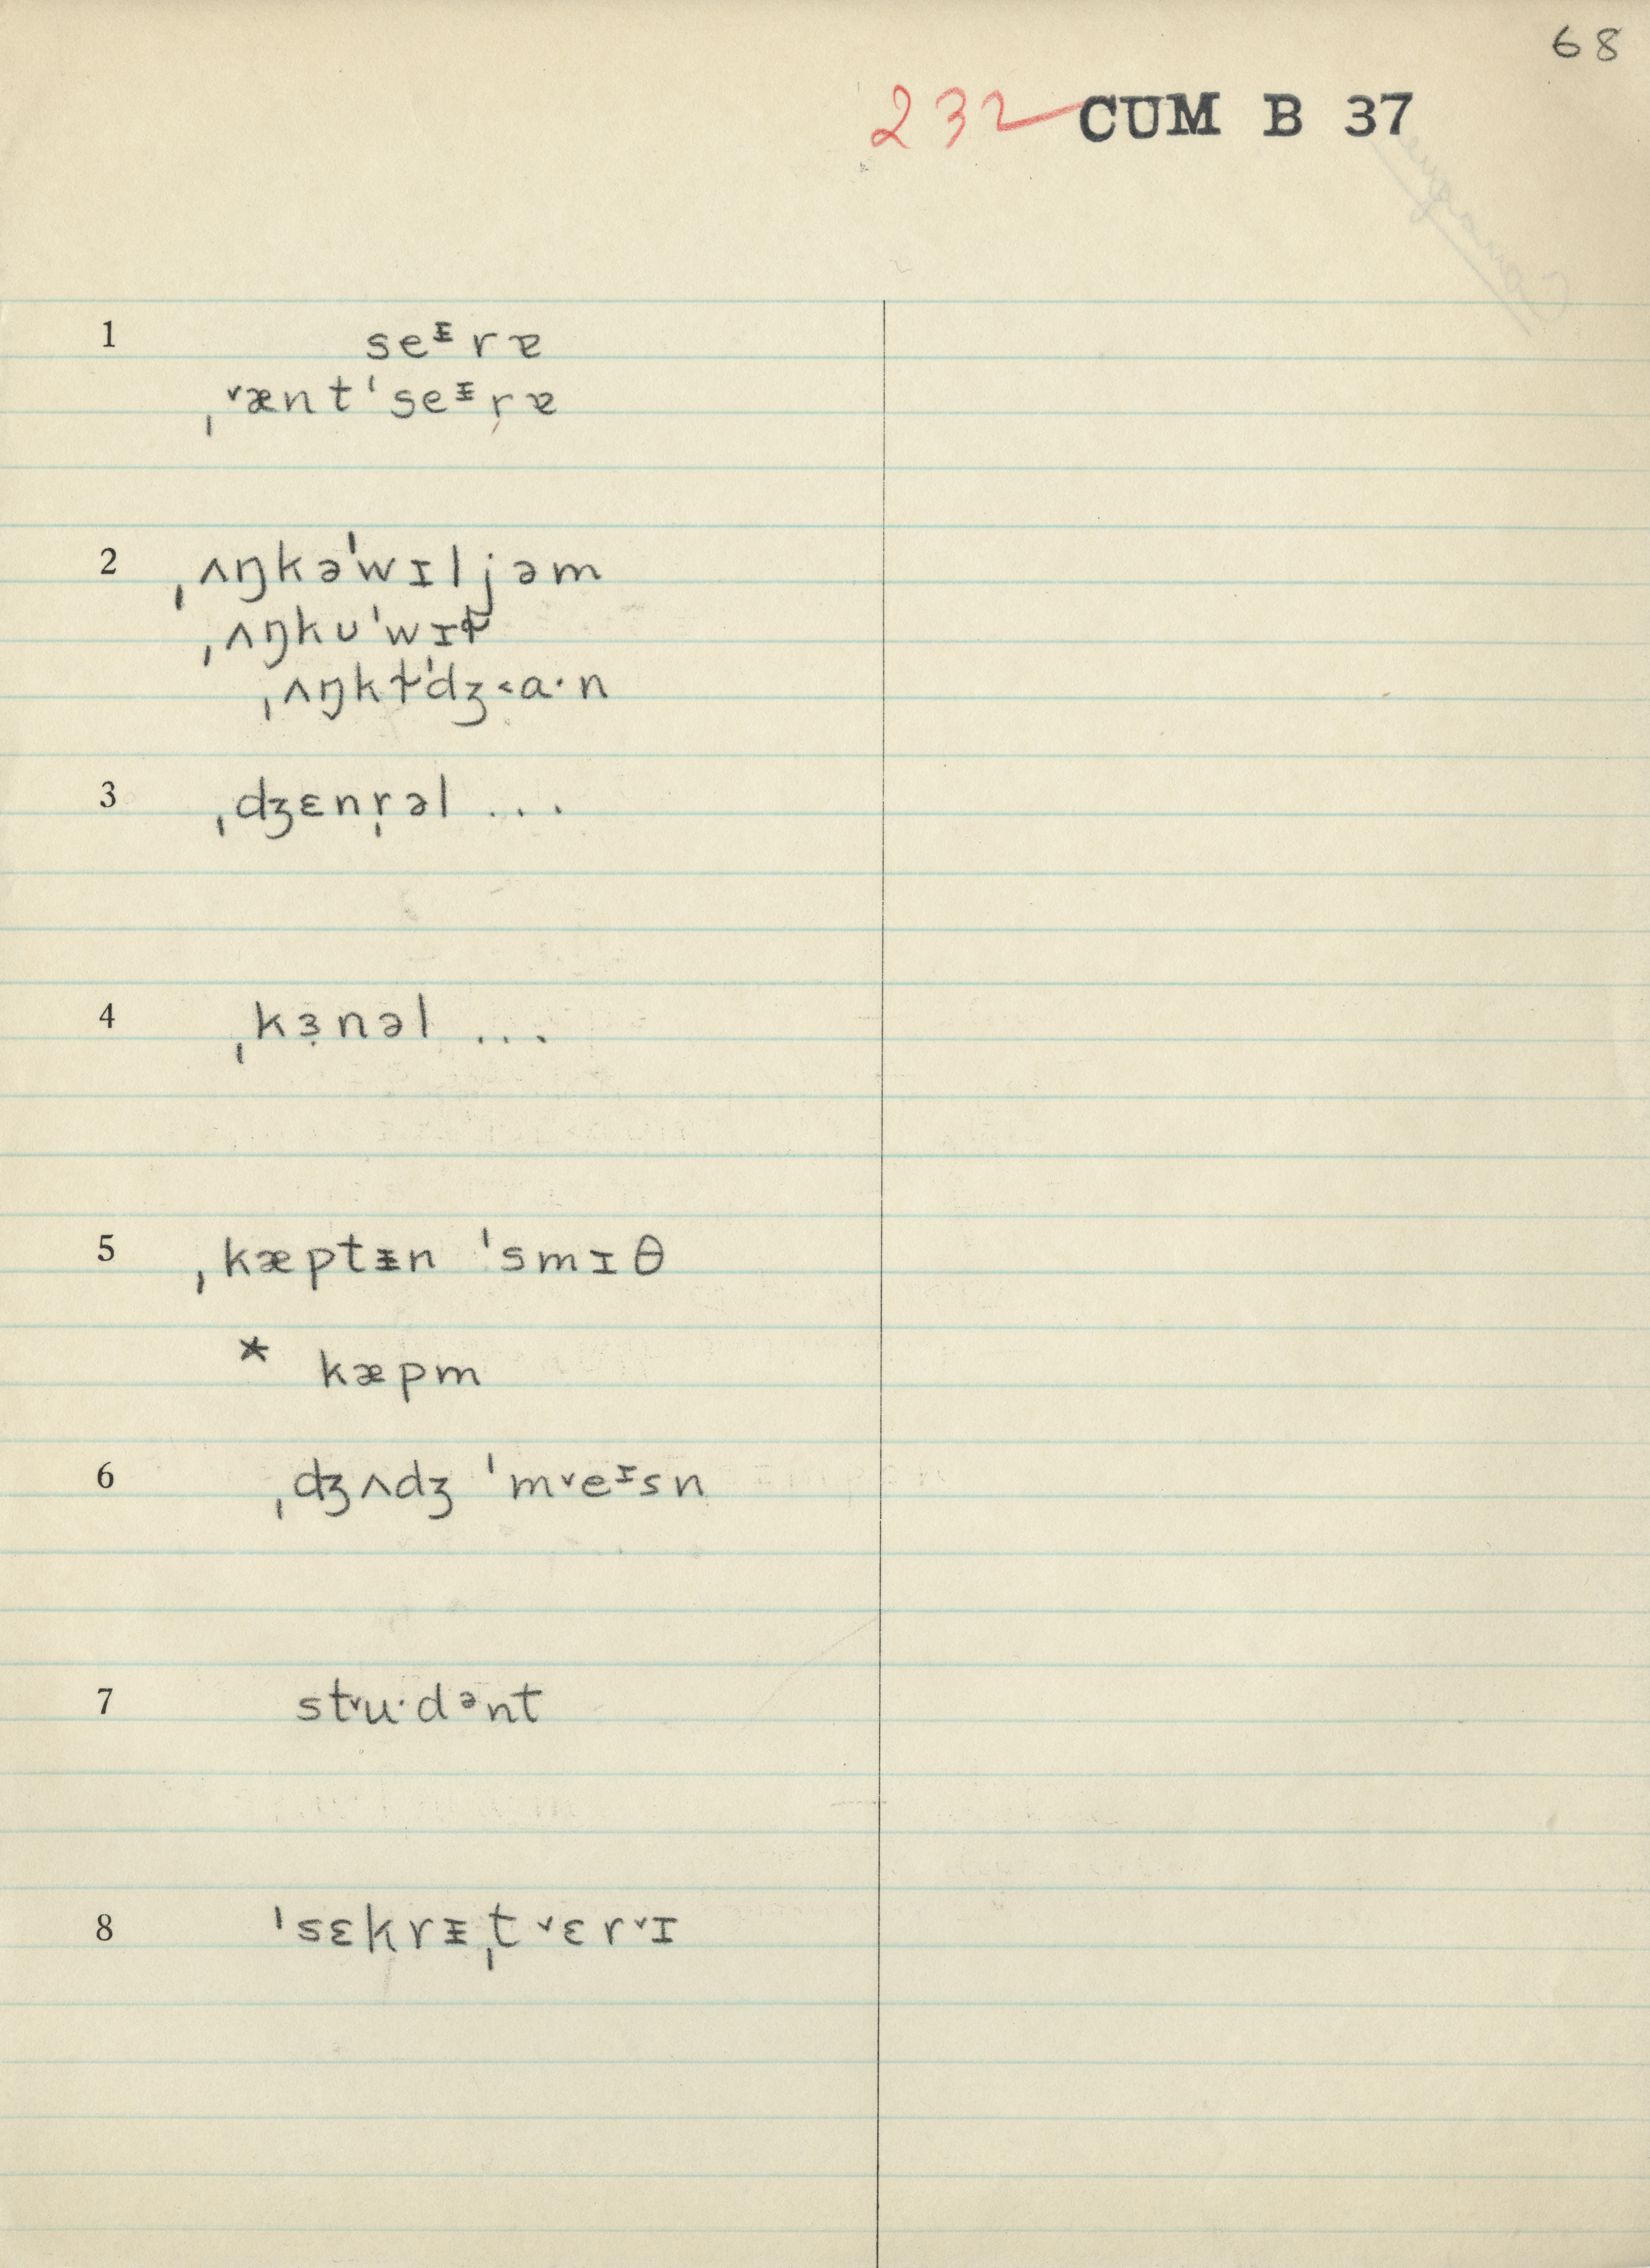 68
232 CUM B 37
1 seᵻrɐ
ˌ˅ænt ˈseᵻrɐ
2 ˌʌŋkəˈwɪljəm
ˌʌŋkʊˈwɪɫ
ˌʌŋkɫˈdʒ˂a·n
3 ˌdʒɛnr̩əl ...
4 ˌkɜ̣nəl ...
5 ˌkæptᵻn ˈsmɪθ
* kæpm
6 ˌdʒʌdʒ ˈm˅eᶦsn
7 st˅u·dᵊnt
8 ˈsɛkrᵻˌt˅ɛr˅ɪ